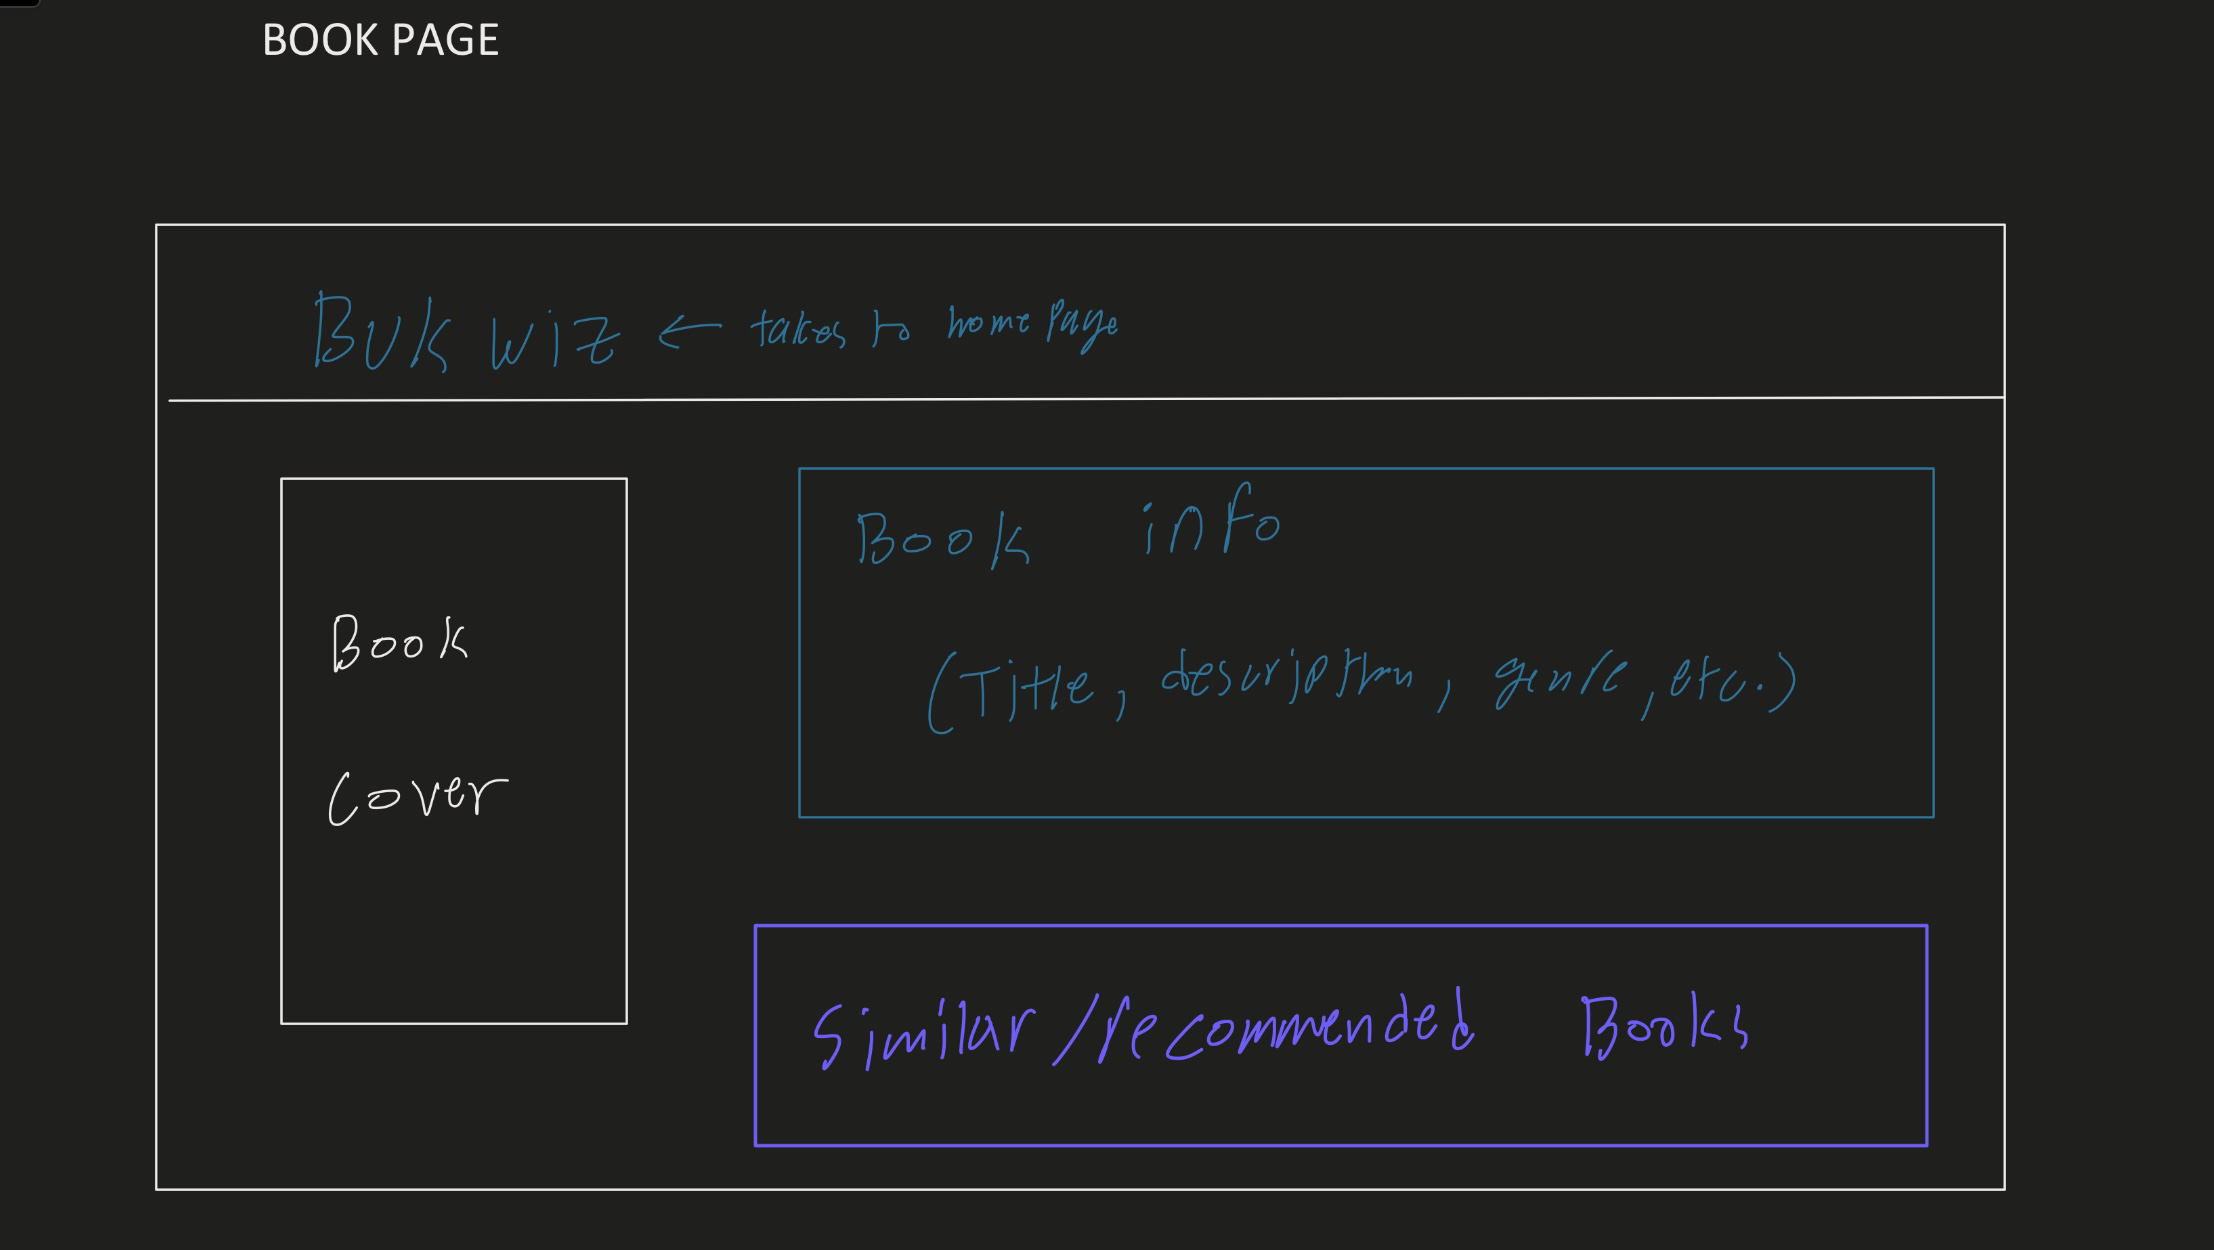 BOOK PAGE
BUK wiz ← takes to home Page
Book info
(Title, description, genre, etc.)
Book
Cover
Similar/recommended Books